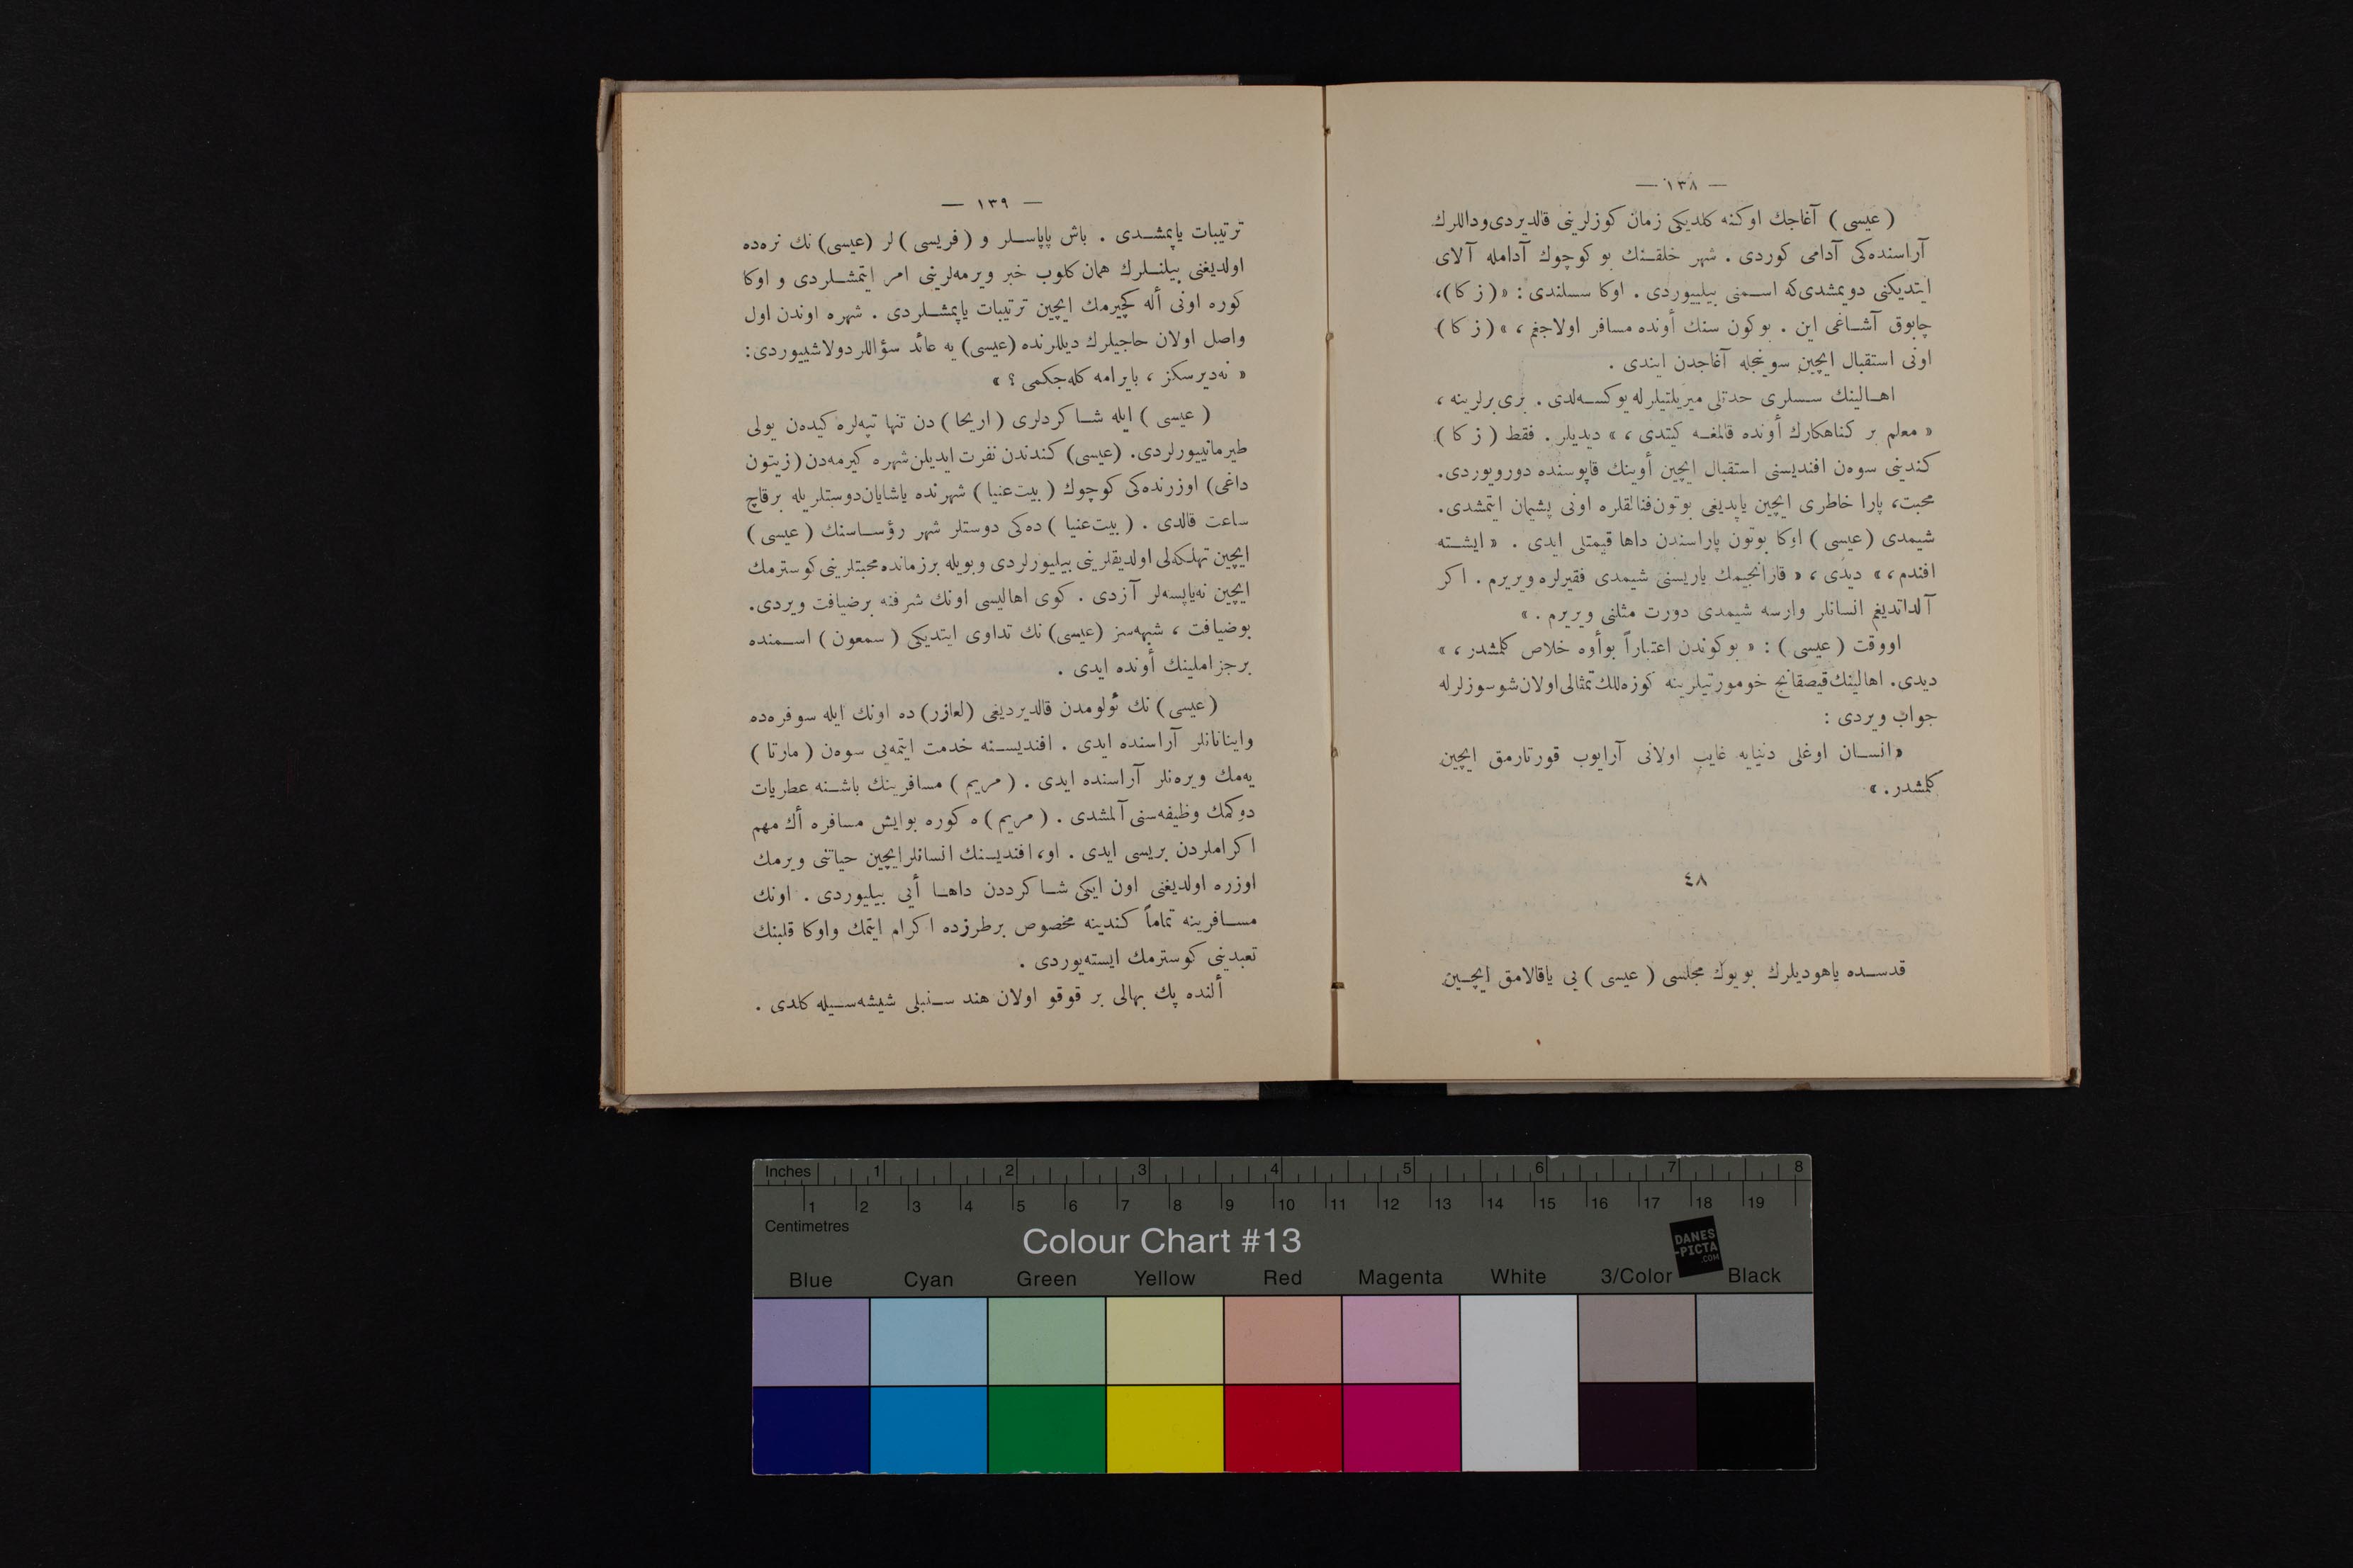 — ١٣٨ —
(عیسی) آغاجك اوكنه كلدیكی زمان كوزلرینی قالدیردی‌ودالرك
آراسنده‌كی آدامی كوردی . شهر خلقنك بو كوچوك آدامله آلای
ایتدیكنی دویمشدی‌كه اسمنی بیلییوردی . اوكا سسلندی : « (زكا)،
چابوق آشاغی این . بوكون سنك أونده مسافر اولاجغم ، » (زكا)
اونی استقبال ایچین سوینجله آغاجدن ایندی .
اهالینك سسلری حدتلی میریلتیلرله یوكسه‌لدی . بری‌برلرینه ،
« معلم بر كناهكارك أونده قالمغه كیتدی ، » دیدیلر . فقط (زكا)
كندینی سوه‌ن افندیسنی استقبال ایچین أوینك قاپوسنده دورویوردی.
محبت، پارا خاطری ایچین یاپدیغی بوتون‌فنالقلره اونی پشیمان ایتمشدی.
شیمدی (عیسی) اوكا بوتون پاراسندن داها قیمتلی ایدی . « ایشته
افندم، » دیدی ، « قازانجیمك یاریسنی شیمدی فقیرلره ویریرم . اكر
آلداتدیغم انسانلر وارسه شیمدی دورت مثلنی ویریرم . »
اووقت (عیسی) : « بوكوندن اعتباراً بوأوه خلاص كلمشدر ، »
دیدی. اهالینك‌قیصقانج خومورتیلرینه كوزه‌للك‌تمثالی‌اولان‌شوسوزلرله
جواب ویردی :
« انسان اوغلی دنیایه غایب اولانی آرایوب قورتارمق ایچین
كلمشدر. »
٤٨
قدسده یاهودیلرك بویوك مجلسی (عیسی) یی یاقالامق ایچین
— ١٣٩ —
ترتیبات یاپمشدی . باش پاپاسلر و (فریسی) لر (عیسی) نك نره‌ده
اولدیغنی بیلنلرك همان كلوب خبر ویرمه‌لرینی امر ایتمشلردی و اوكا
كوره اونی أله كچیرمك ایچین ترتیبات یاپمشلردی . شهره اوندن اول
واصل اولان حاجیلرك دیللرنده (عیسی) یه عائد سؤاللردولاشییوردی:
« نه‌دیرسكز ، بایرامه كله‌جكمی ؟ »
(عیسی) ایله شاكردلری (اریحا) دن تنها تپه‌لره كیده‌ن یولی
طیرمانییورلردی. (عیسی) كندندن نفرت ایدیلن‌شهره كیرمه‌دن (زیتون
داغی) اوزرنده‌كی كوچوك (بیت‌عنیا) شهرنده یاشایان‌دوستلریله برقاچ
ساعت قالدی . (بیت‌عنیا) ده‌كی دوستلر شهر رؤساسنك (عیسی)
ایچین تهلكه‌لی اولدیقلرینی بیلیورلردی وبویله برزمانده‌محبتلرینی‌كوسترمك
ایچین نه‌یاپسه‌لر آزدی . كوی اهالیسی اونك شرفنه برضیافت ویردی.
بوضیافت ، شبهه‌سز (عیسی) نك تداوی ایتدیكی (سمعون) اسمنده
برجزاملینك أونده ایدی .
(عیسی) نك ئولومدن قالدیردیغی (لعازر) ده اونك ایله سوفره‌ده
واینانانلر آراسنده ایدی . افندیسنه خدمت ایتمه‌یی سوه‌ن (مارتا)
یه‌مك ویره‌نلر آراسنده ایدی . (مریم) مسافرینك باشنه عطریات
دوكمك وظیفه‌سنی آلمشدی . (مریم) ه كوره بوایش مسافره أك مهم
اكراملردن بریسی ایدی . او، افندیسنك انسانلرایچین حیاتنی ویرمك
اوزره اولدیغنی اون ایكی شاكرددن داها أیی بیلیوردی . اونك
مسافرینه تماماً كندینه مخصوص برطرزده اكرام ایتمك واوكا قلبنك
تعبدینی كوسترمك ایسته‌یوردی .
ألنده پك بهالی بر قوقو اولان هند سنبلی شیشه‌سیله كلدی .
Inches 1 2 3 4 5 6 7 8
1 2 3 4 5 6 7 8 9 10 11 12 13 14 15 16 17 18 19
Centimetres
Colour Chart #13
DANES
-PICTA
.COM
Blue Cyan Green Yellow Red Magenta White 3/Color Black